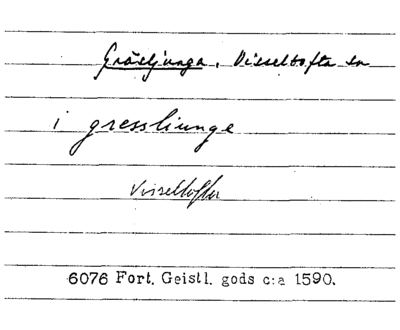 Gräsljunga, Visseltofta sn
i gressliunge
Visseltofter
6076 Fort. Geistl. gods c:a 1590.